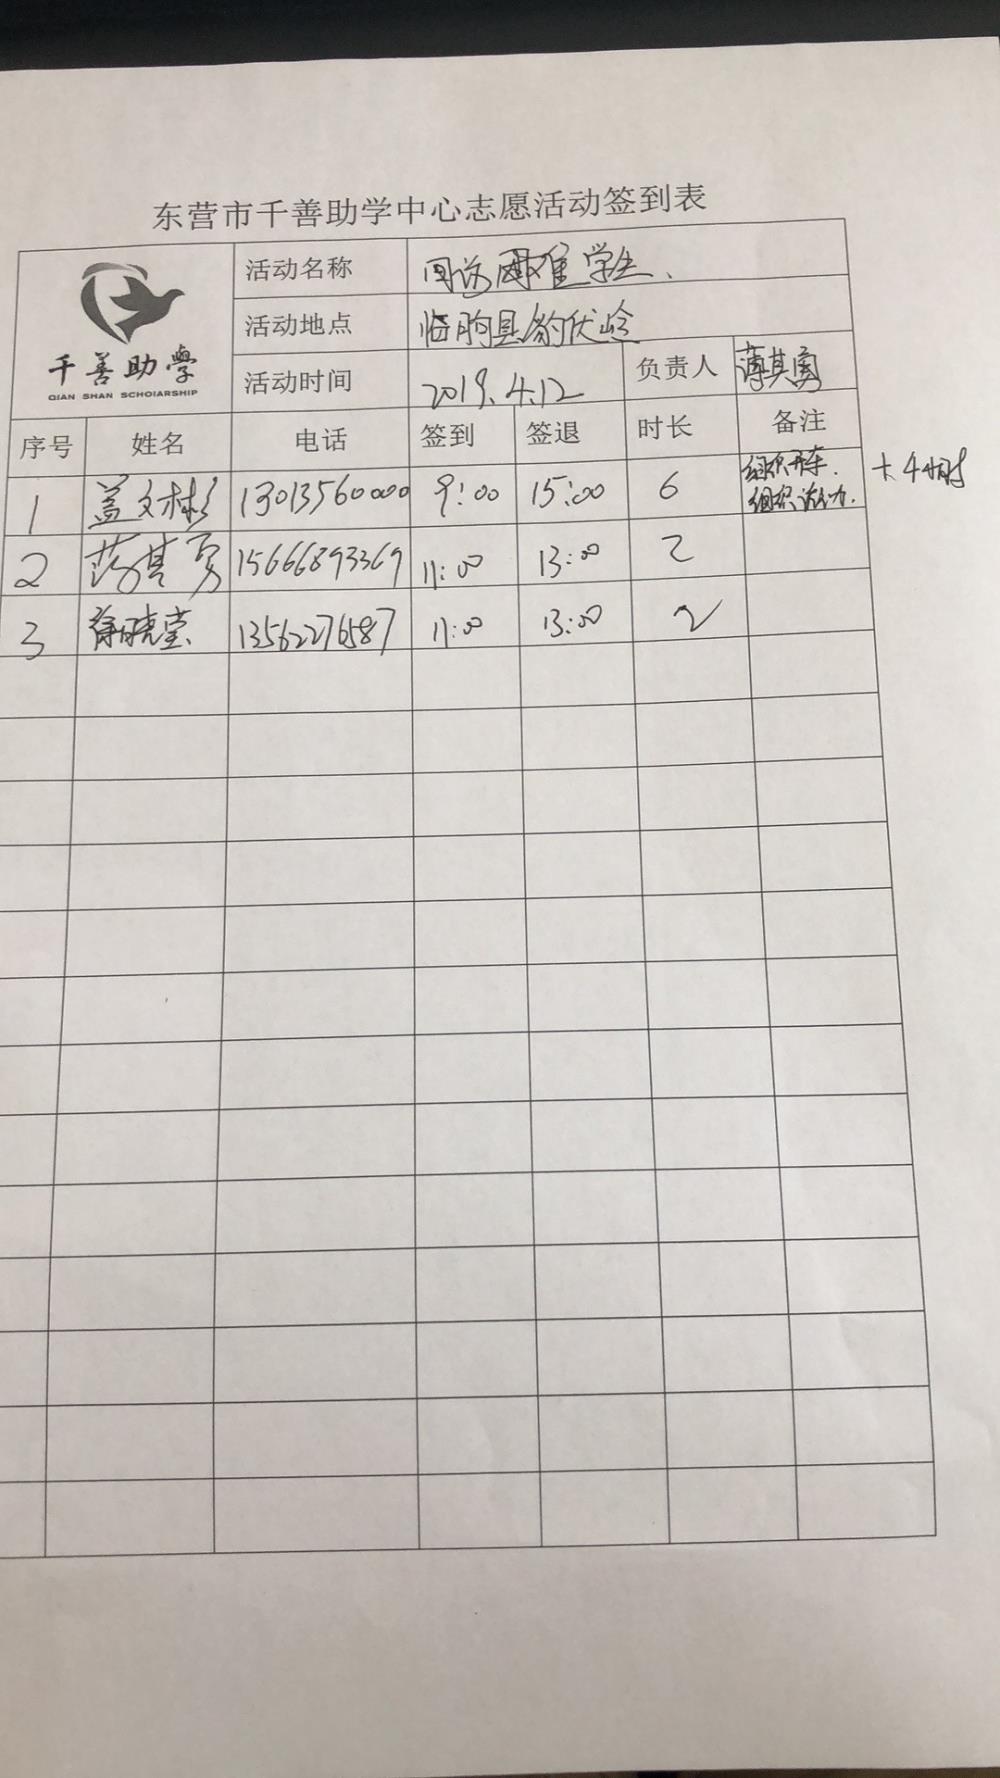 东营市千善助学中心志愿活动签到表
千善助學
QIAN SHAN SCHOlARSHIP
活动名称 回访困难学生.
活动地点 临朐县豹伏岭
活动时间 2019.4.12 负责人 薄其勇
序号 姓名 电话 签到 签退 时长 备注
1 盖文彬 13013560000 9:00 15:00 6 组织开车. 组织活动. +4小时
2 薄其勇 15666893369 11:00 13:00 2
3 徐晓莹 13562276587 11:00 13:00 2